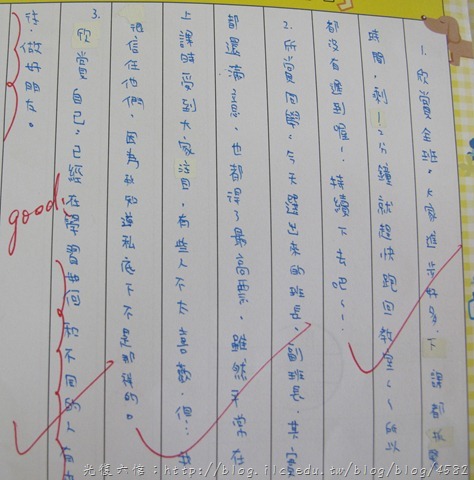 1. 欣賞全班。大家進步好多,下課都抓緊
時間,剩1~2分鐘就超快跑回教室~~所以
都沒有遲到喔!持續下去吧~~!
2. 欣賞 今天選出來的班長、副班長,其實
都還滿 也都得了最高票,雖然平常在
上課時受到大家 有些人不太喜歡,但…我
很信任他們,因為我知道私底下不是那樣的。
3. 欣賞自己。已經在學習如何和不同的人
往,做好朋友。
good
光復六信:http://blog.ilc.edu.tw/blog/blog/4582